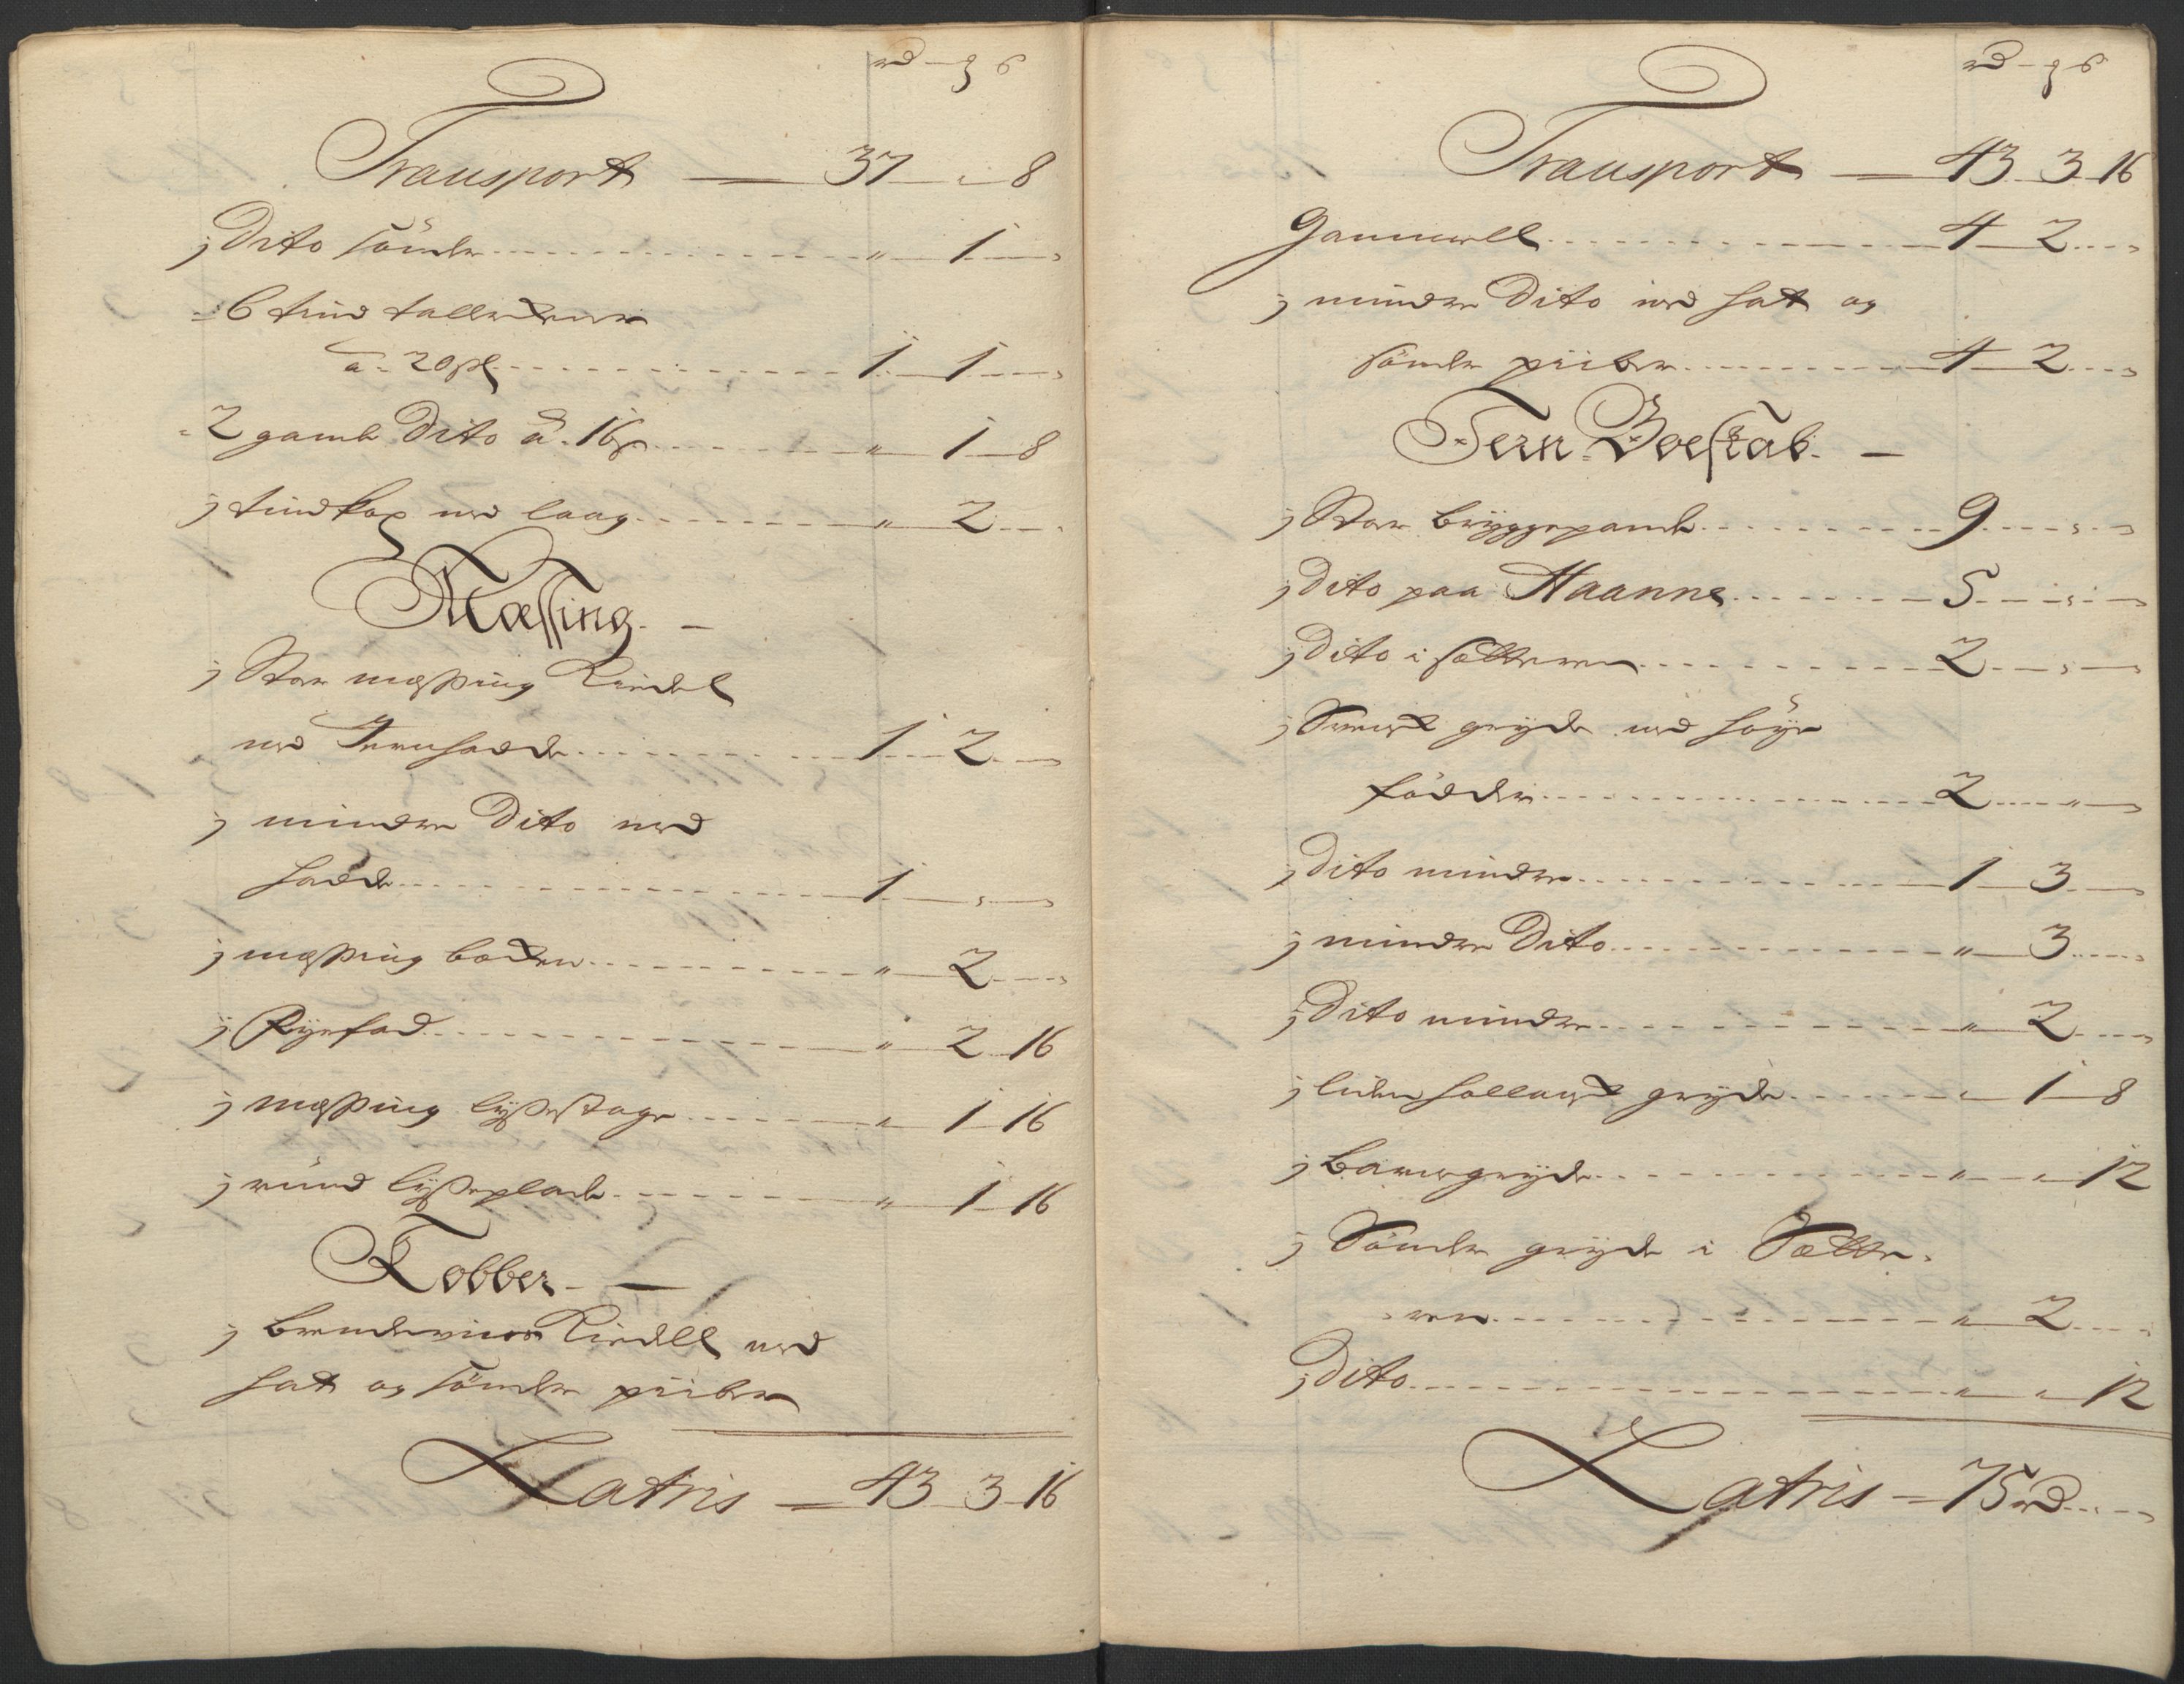 rd - ȝ ß
Transport — 37 — „ — 8
j Dito sönder „ — 1 —
6 tind tallerkener
a 20 sk 1 — 1 —
2 gamle Dito a 16 ß „ — 1 — 8
j tindkop med laag „ — 2 —
Messing. —
j Stor messing Kiedel
med Jernhadde 1 — 2 —
j mindre Dito med
hadde 1 — „ —
j messing becken „ — 2 —
j Fyrfad „ — 2 — 16
j messing lysestage „ — 1 — 16
j rund lyseplade „ — 1 — 16
Kobber. —
j brendeviins Kiedell med
hat og sönder piiber
Lateris — 43 — 3 — 16
rd - ȝ ß
Transport — 43 — 3 — 16
gammell 4 — 2 —
j mindre Dito med hat og
sönder piiber 4 — 2 —
Jern Boeskab. —
j Stor bryggepande 9 — „ —
j Dito paa Haanne 5 — „ —
j Dito i sætteren 2 — „ —
j Swensk gryde med höye
födder 2 — „ —
j Dito mindre 1 — 3 —
j mindre Dito „ — 3 —
j Dito mindre „ — 2 —
j liden hollansk gryde „ — 1 — 8
j barnegryde „ — „ — 12
j Sönder gryde i Sætte-
ren „ — 2 —
j Dito „ — „ — 12
Lateris — 75 rd —